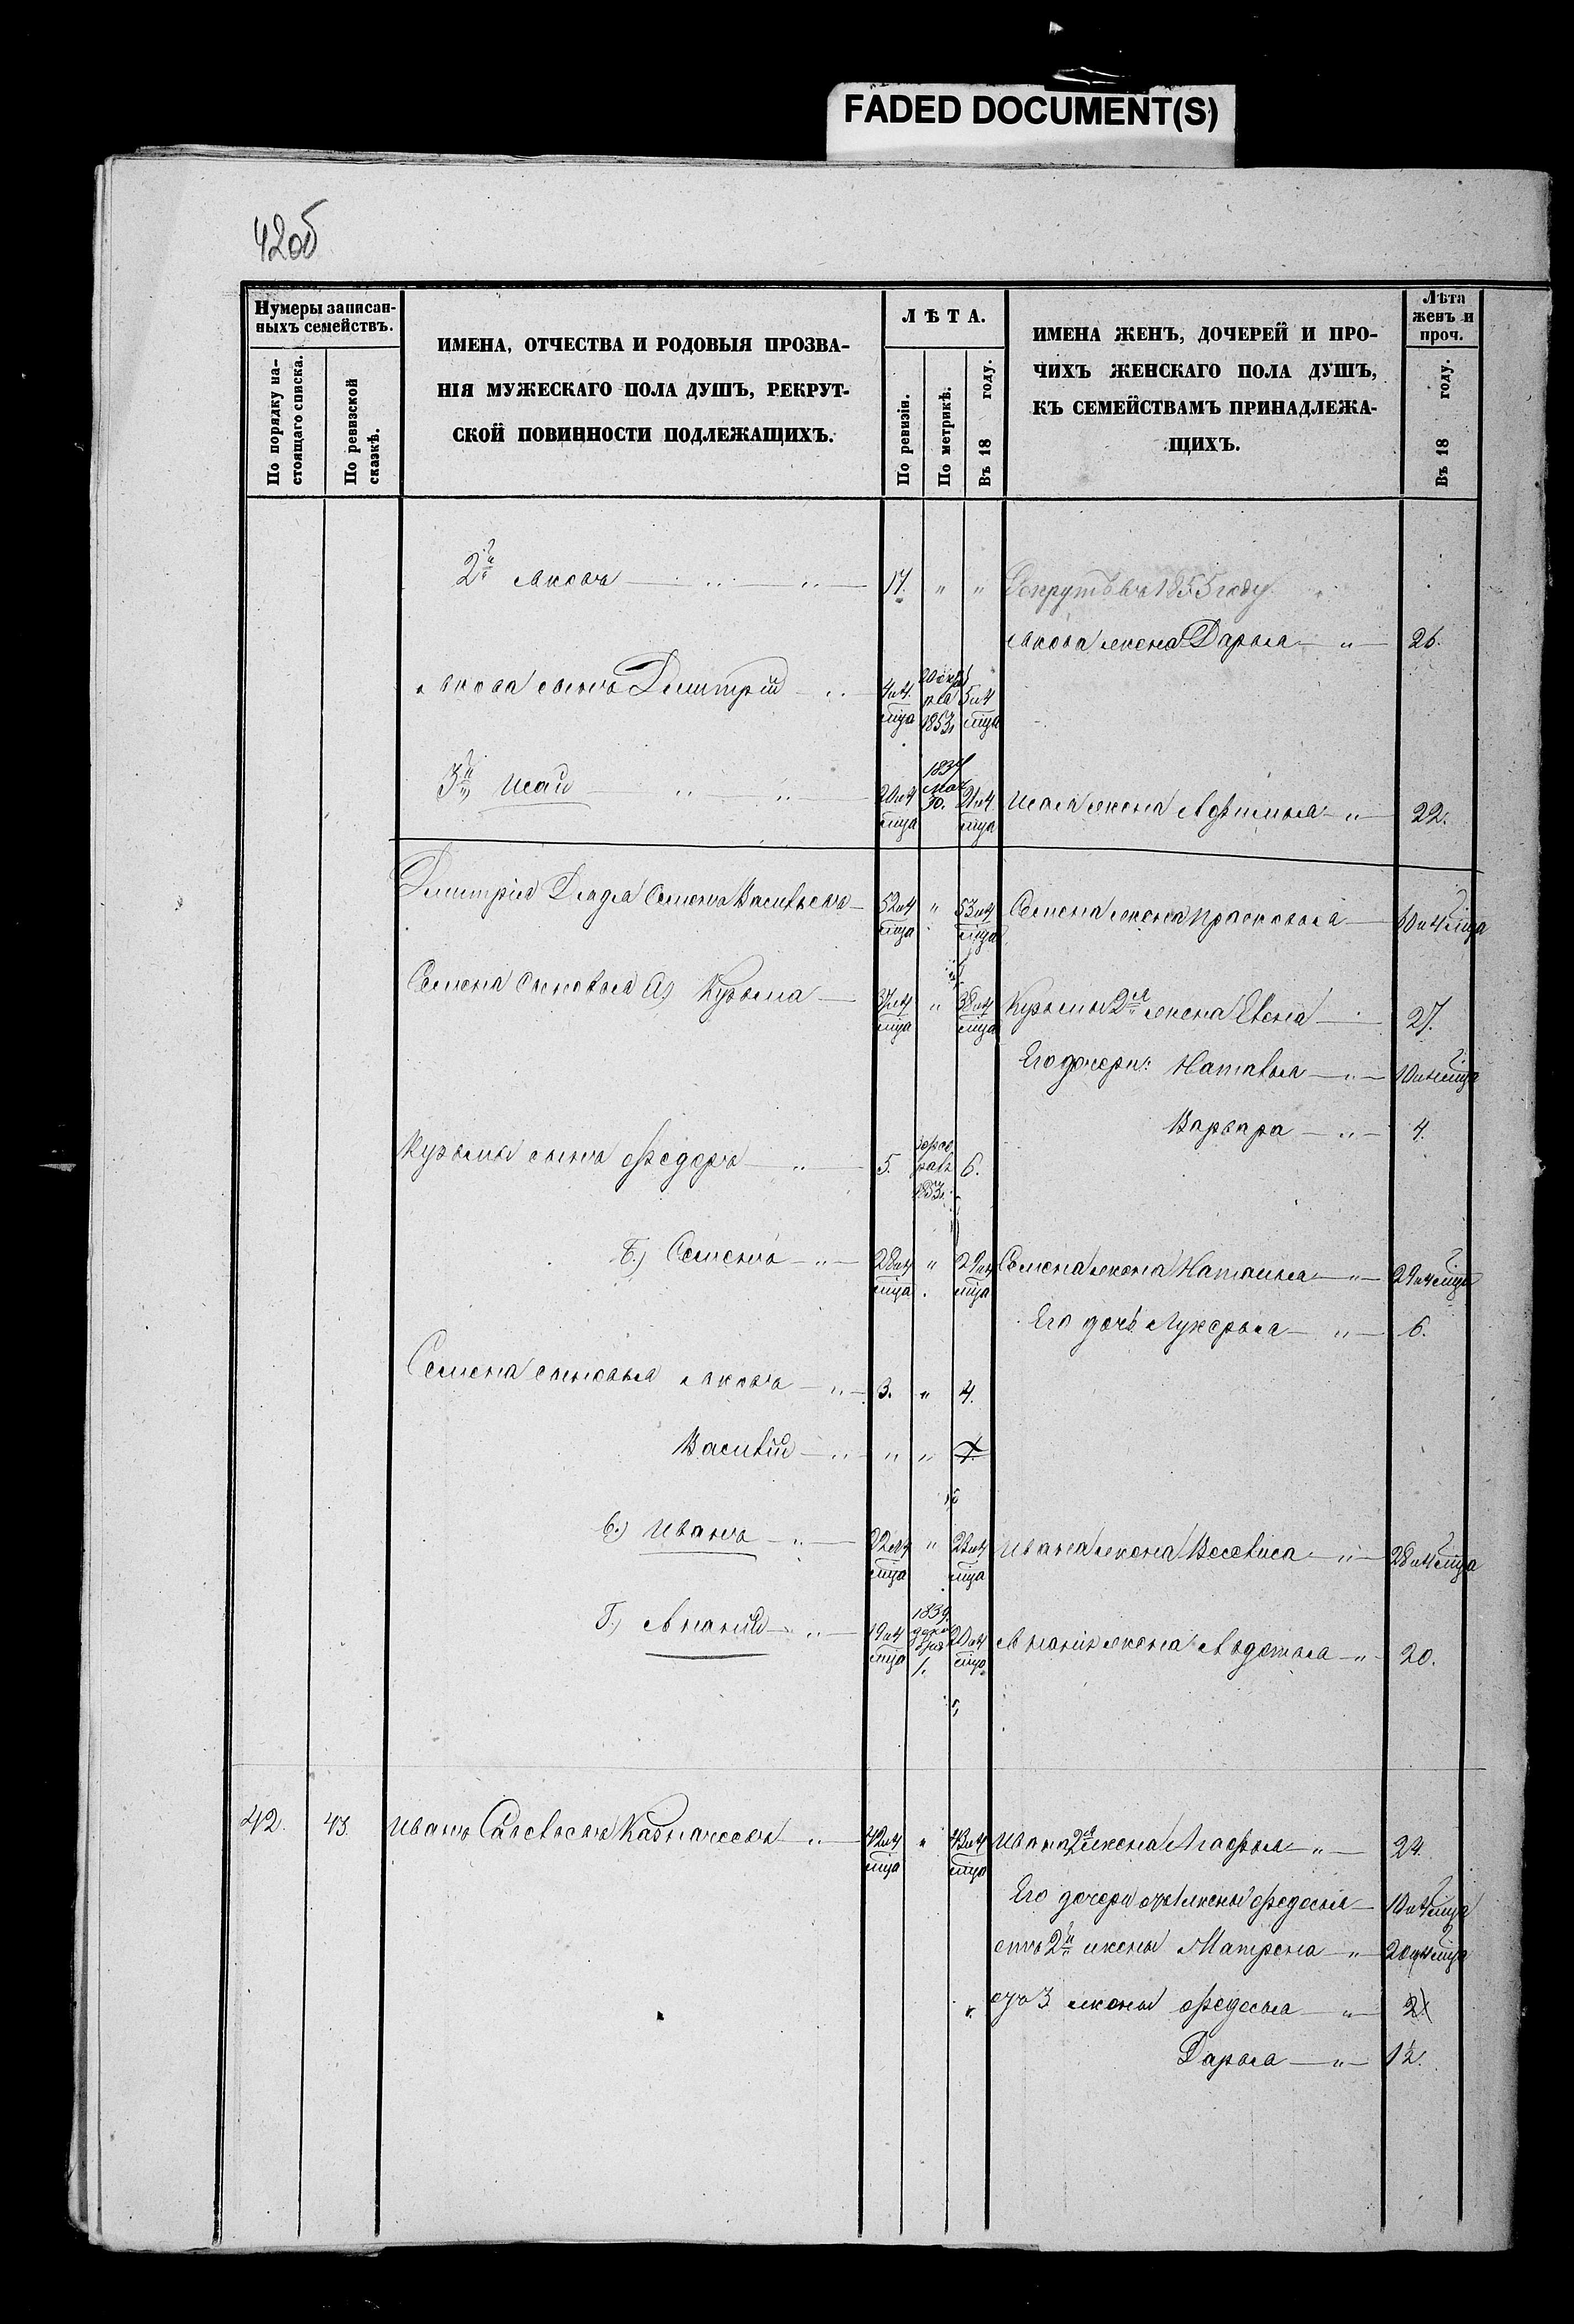 FADED DOCUMENT(S)
42об
Нумеры записан-
ныхъ семействъ.
По порядку на-
стоящаго списка.
По ревизской
сказкѣ.
ИМЕНА, ОТЧЕСТВА И РОДОВЫЯ ПРОЗВА-
НІЯ МУЖЕСКАГО ПОЛА ДУШЪ, РЕКРУТ-
СКОЙ ПОВИННОСТИ ПОДЛЕЖАЩИХЪ.
ЛѢТА.
По ревизіи.
По метрикѣ.
Въ 18 году.
ИМЕНА ЖЕНЪ, ДОЧЕРЕЙ И ПРО-
ЧИХЪ ЖЕНСКАГО ПОЛА ДУШЪ,
КЪ СЕМЕЙСТВАМЪ ПРИНАДЛЕЖА-
ЩИХЪ.
Лѣта
женъ и
проч.
Въ 18 году.
2й Яковъ 17. " " Рекрутъ въ 1855 году
Якова жена Дарья " 26.
Якова сынъ Димитрій 4 и 4 мца 1853 5 и 4 мца
3й Исай 20 и 4 мца 1837 мая 21 и 4 мца Исая жена Афимья " 22.
Димитрія Дядя Семенъ Васильевъ 52 и 4 мца " 53 и 4 мца Семена жена Прасковья и 4 мца
Семена сыновья а) Кузьма 37 и 4 мца " 38 и 4 мца Кузьмы 2я жена Елена 27.
Его дочери: Наталья " 10 и 4 мца
Варвара " 4.
Кузьмы сынъ Федоръ " 5. 1853. 6.
б.) Семенъ " 28 и 4 мца " 29 и 4 мца Семена жена Наталья " 29 и 4 мца
Его дочь Лукерья " 6.
Семена сыновья Яковъ " 3. " 4.
Василій " " "
в.) Иванъ " 22 и 4 мца " 23 и 4 мца Ивана жена Василиса " 28 и 4 мца
г.) Ананій " 19 и 4 мца 1839. декабря 1. 20 и 4 мца Ананія жена Авдотья " 20.
42. 43. Иванъ Савельевъ Казначеевъ " 42 и 4 мца " 43 и 4 мца Ивана 2я жена Агафья " 24.
Его дочери отъ 1 жены Федосья 10 и 4 мца
отъ 2й жены Матрена " и 4 мца
отъ 3 жены Федосья " 2
Дарья " 1½.